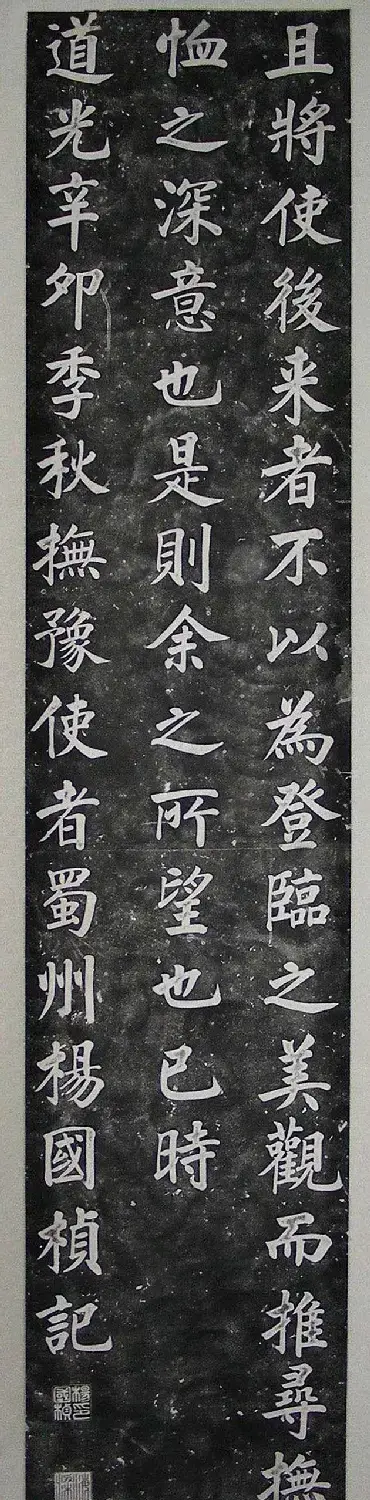 且將使後来者不以為登臨之美觀而推尋撫
恤之深意也是則余之所望也已時
道光辛卯季秋撫豫使者蜀州楊國楨記
楊國楨印